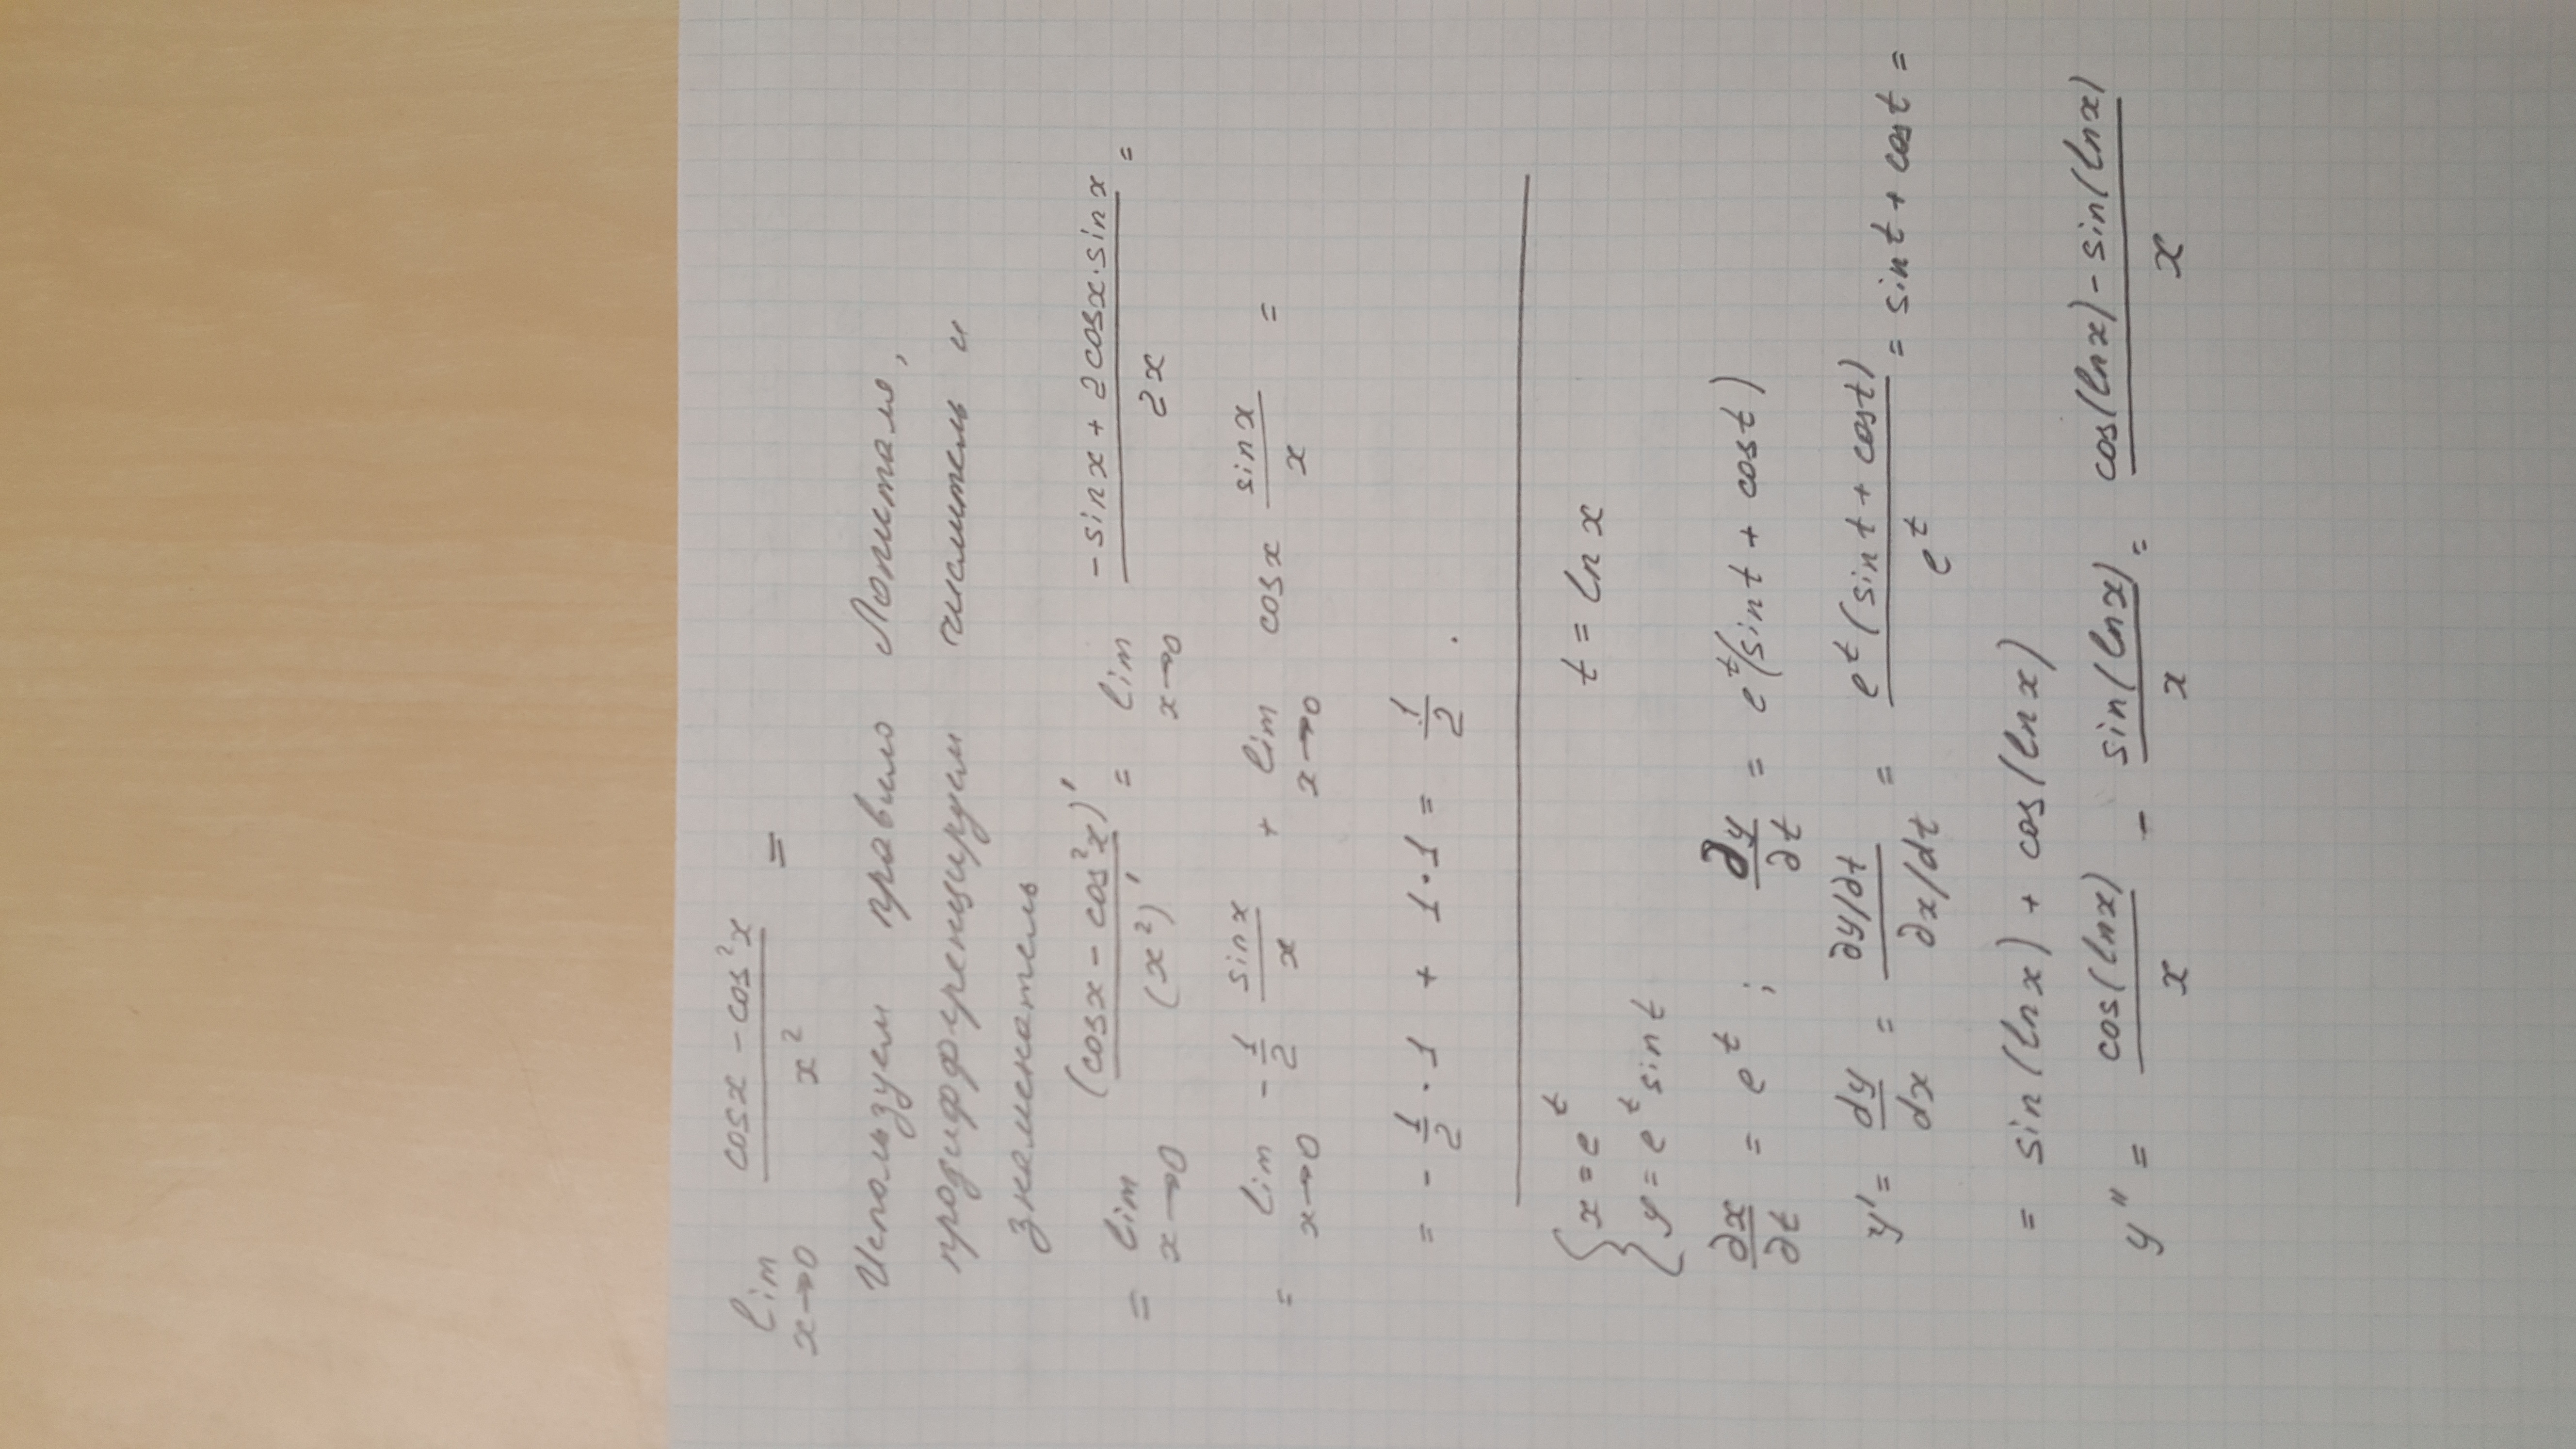 lim x→0 (cosx - cos²x)/x² =
Используем правило Лопиталя,
продифференцируем числитель и
знаменатель
= lim x→0 (cosx - cos²x)'/(x²)' = lim x→0 (-sinx + 2cosx·sinx)/2x =
= lim x→0 -1/2 sinx/x + lim x→0 cosx sinx/x =
= -1/2 · 1 + 1·1 = 1/2 .
{ x = e^t t = ln x
y = e^t sin t
∂x/∂t = e^t ; ∂y/∂t = e^t(sin t + cos t)
y' = dy/dx = (∂y/∂t)/(∂x/dt) = e^t(sin t + cos t)/e^t = sin t + cos t =
= sin(ln x) + cos(ln x)
y'' = cos(ln x)/x - sin(ln x)/x = (cos(ln x) - sin(ln x))/x